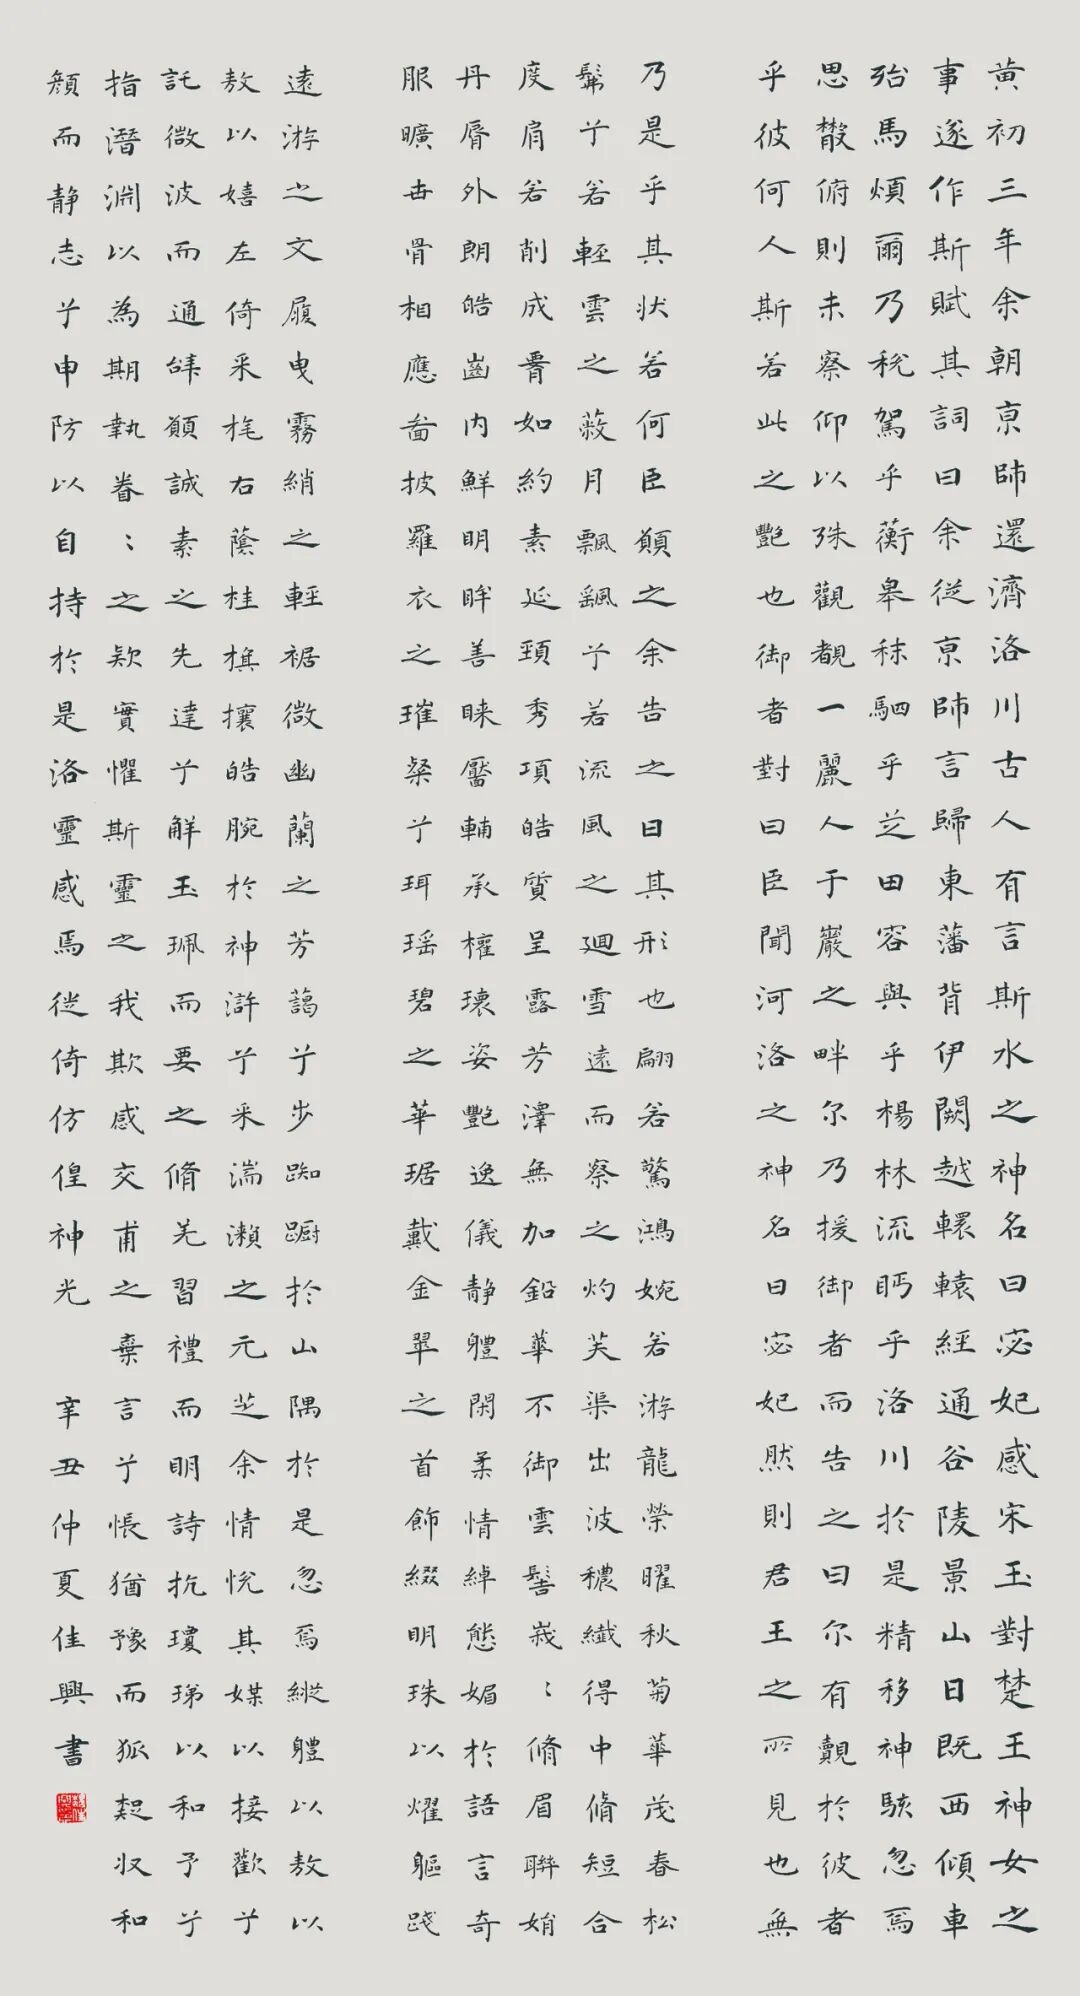 黄初三年余朝京師還濟洛川古人有言斯水之神名曰宓妃感宋玉對楚王神女之
事遂作斯賦其詞曰余從京師言歸東藩背伊闕越轘轅經通谷陵景山日既西傾車
殆馬煩爾乃稅駕乎蘅皋秣駟乎芝田容與乎楊林流眄乎洛川於是精移神駭忽焉
思散俯則未察仰以殊觀覩一麗人于巖之畔尔乃援御者而告之曰尔有覿於彼者
乎彼何人斯若此之艷也御者對曰臣聞河洛之神名曰宓妃然則君王之所見也無
乃是乎其狀若何臣願之余告之曰其形也翩若驚鴻婉若游龍榮曜秋菊華茂春松
髴兮若輕雲之蔽月飄颻兮若流風之迴雪遠而察之灼芙渠出波穠纖得中脩短合
度肩若削成腰如約素延頸秀項皓質呈露芳澤無加鉛華不御雲髻峩〻脩眉聯娟
丹脣外朗皓齒内鮮明眸善睞靨輔承權瓌姿艷逸儀静體閑柔情綽態媚於語言奇
服曠世骨相應畵披羅衣之璀粲兮珥瑶碧之華琚戴金翠之首飾綴明珠以燿軀踐
遠游之文履曳霧綃之輕裾微幽蘭之芳藹兮步踟蹰於山隅於是忽焉縱體以敖以
敖以嬉左倚采旄右蔭桂旗攘皓腕於神滸兮采湍瀨之元芝余情悅其媒以接歡兮
託微波而通辭願誠素之先達兮解玉珮而要之脩羌習禮而明詩抗瓊珶以和予兮
指潛淵以為期執眷〻之欵實懼斯靈之我欺感交甫之棄言兮悵猶豫而狐疑収和
顏而静志兮申防以自持於是洛靈感焉徙倚仿偟神光
辛丑仲夏佳興書